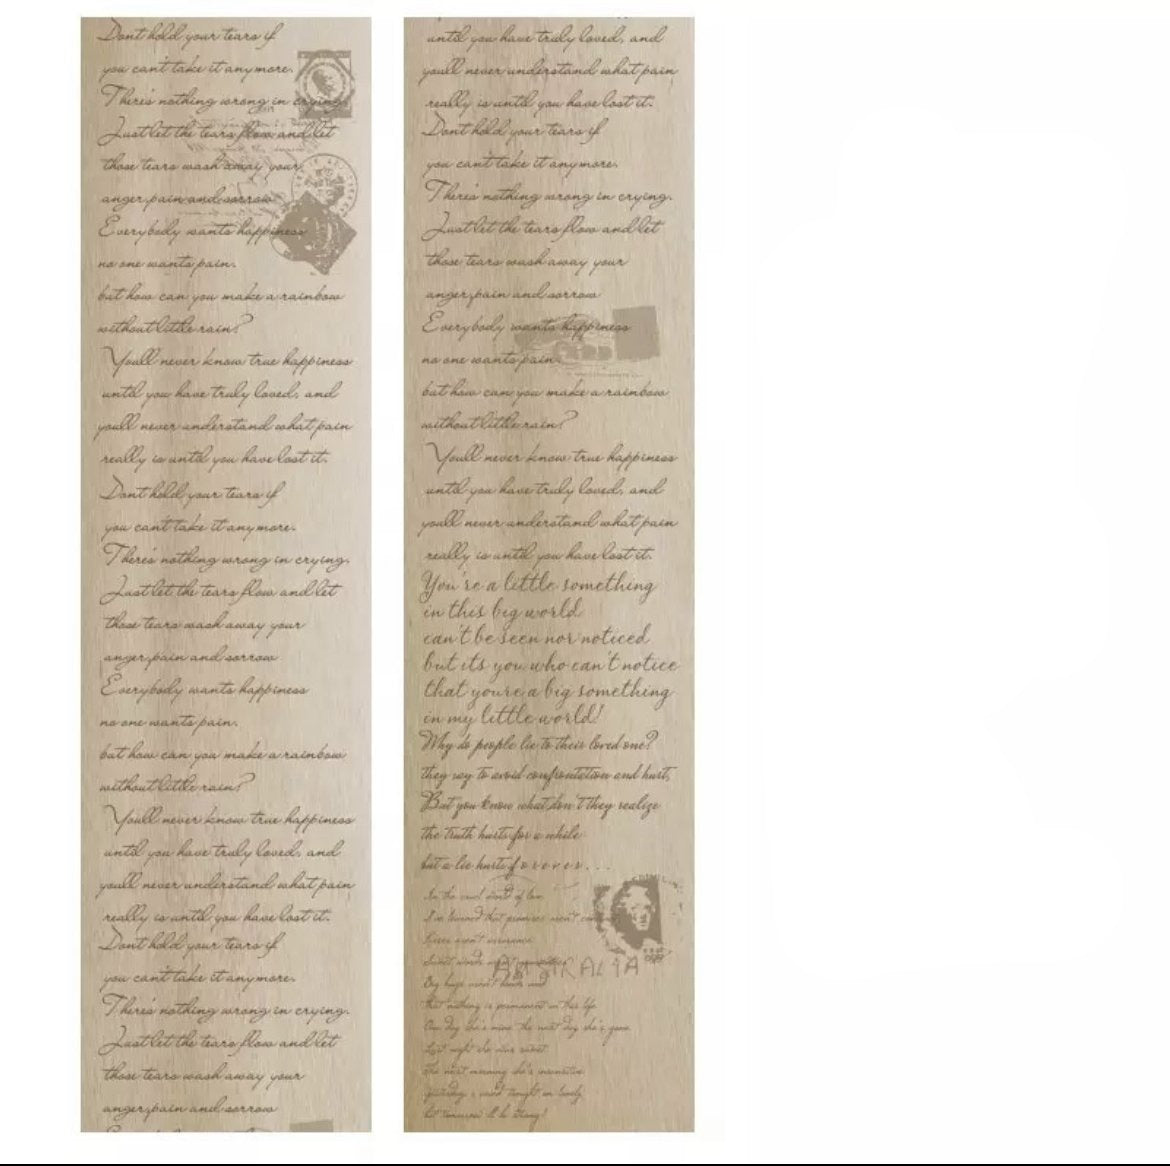 Dont hold your tears if
you can't take it anymore.
There's nothing wrong in crying.
Just let the tears flow and let
those tears wash away your
anger, pain and sorrow
Everybody wants happiness
no one wants pain.
but how can you make a rainbow
without little rain?
Youll never know true happiness
until you have truly loved, and
youll never understand what pain
really is until you have lost it.
Dont hold your tears if
you can't take it anymore.
There's nothing wrong in crying.
Just let the tears flow and let
those tears wash away your
anger, pain and sorrow
Everybody wants happiness
no one wants pain.
but how can you make a rainbow
without little rain?
Youll never know true happiness
until you have truly loved, and
youll never understand what pain
really is until you have lost it.
Dont hold your tears if
you can't take it anymore.
There's nothing wrong in crying.
Just let the tears flow and let
those tears wash away your
anger, pain and sorrow
until you have truly loved, and
youll never understand what pain
really is until you have lost it.
Dont hold your tears if
you can't take it anymore.
There's nothing wrong in crying.
Just let the tears flow and let
those tears wash away your
anger, pain and sorrow
Everybody wants happiness
no one wants pain.
but how can you make a rainbow
without little rain?
Youll never know true happiness
until you have truly loved, and
youll never understand what pain
really is until you have lost it.
You're a little something
in this big world
can't be seen nor noticed
but its you who can't notice
that youre a big something
in my little world!
Why do people lie to their loved one?
they say to avoid confrontation and hurt,
But you know what don't they realize
the truth hurts for a while
but a lie hurts forever...
I've learned that promises aren't
Sweet words
AUSTRALIA
Big hugs
that nothing is permanent in this life
One day she's mine the next day she's gone
Last night she was sweet
the next morning she's insensitive